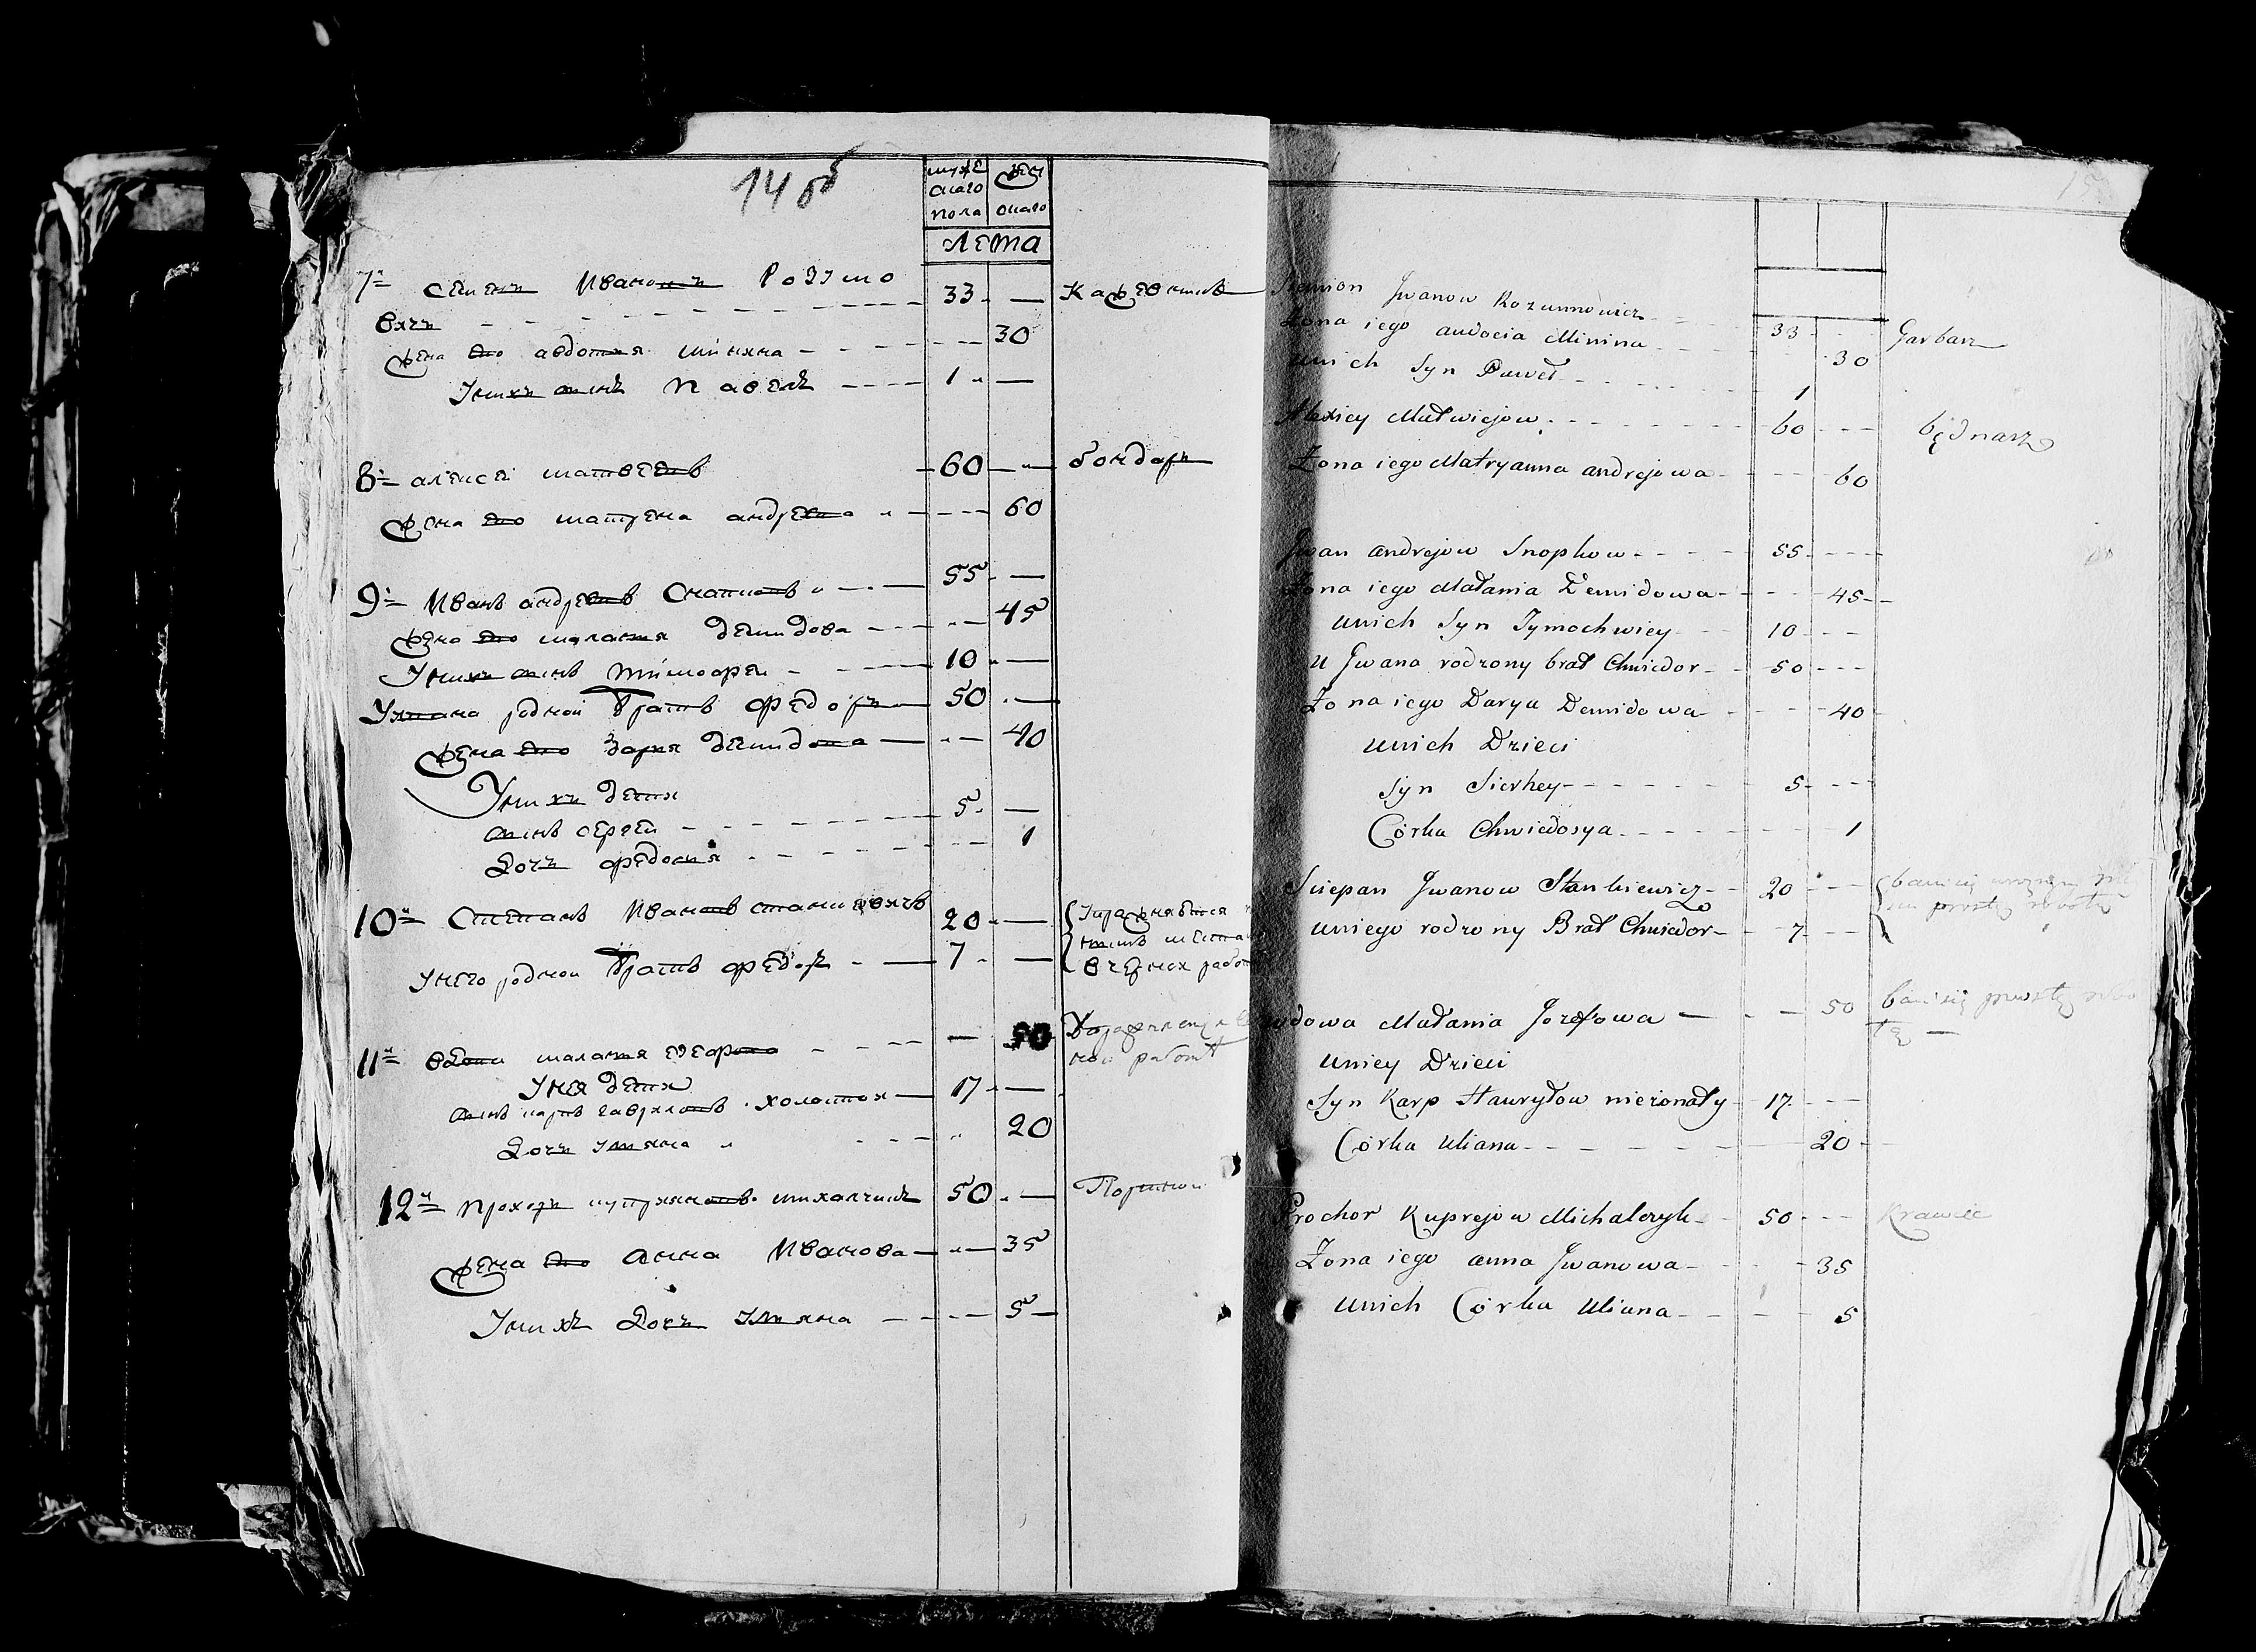 14 об
муже
скаго
пола
жен
скаго
лета
7й Семенъ Ивановъ Розумо 33 —
вичъ Кожевникъ
жена его авдотья минина 30
У нихъ сынъ Павелъ 1 —
8й алексей матвеевъ 60 — бондарь
жена его матрена андревна 60
9й Иванъ андреевъ Снапковъ 55 —
жена его маланья демидова 45
У нихъ сынъ тимофей 10 —
У ивана родной братъ Федоръ 50 —
жена его дарья демидова 40
У нихъ дети
сынъ сергей 5 —
дочь федосия 1
10й Степанъ Ивановъ станкевичъ 20 —
У него родной братъ федоръ 7 —
в черной
11й вдова маланья 50
ной работе
У нея дети
сынъ карпъ гавриловъ холостой 17 —
дочь ульяна 20
12й Прохоръ куприяновъ михалчикъ 50 — Портной
жена его Анна Иванова 35
У нихъ дочь ульяна 5
15
Siemion Jwanow Rozumowicz 33 Garbarz
Żona iego audocia Minina 30
unich Syn Paweł 1
Alexiey Matwiejow 60 będnarz
Żona iego Matryanna andrejowa 60
Jwan andrejow Snopkow 55
Żona iego Małania Demidowa 45
unich Syn Tymochwiey 10
u Jwana rodzony brat Chwiedor 50
Żona iego Darya Demidowa 40
unich Dzieci
Syn Sierhey 5
Córka Chwiedosya 1
Sciepan Jwanow Stankiewicz 20 bawi się
uniego rodzony Brat Chwiedor 7
wdowa Małania Jozefowa 50 bawi się prostą robo
tą
uniey Dzieci
Syn Karp Hauryłow nieżonaty 17
Córka Uliana 20
Prochor Kuprejow Michalczyk 50 Krawiec
Żona iego anna Jwanowa 35
unich Córka Uliana 5